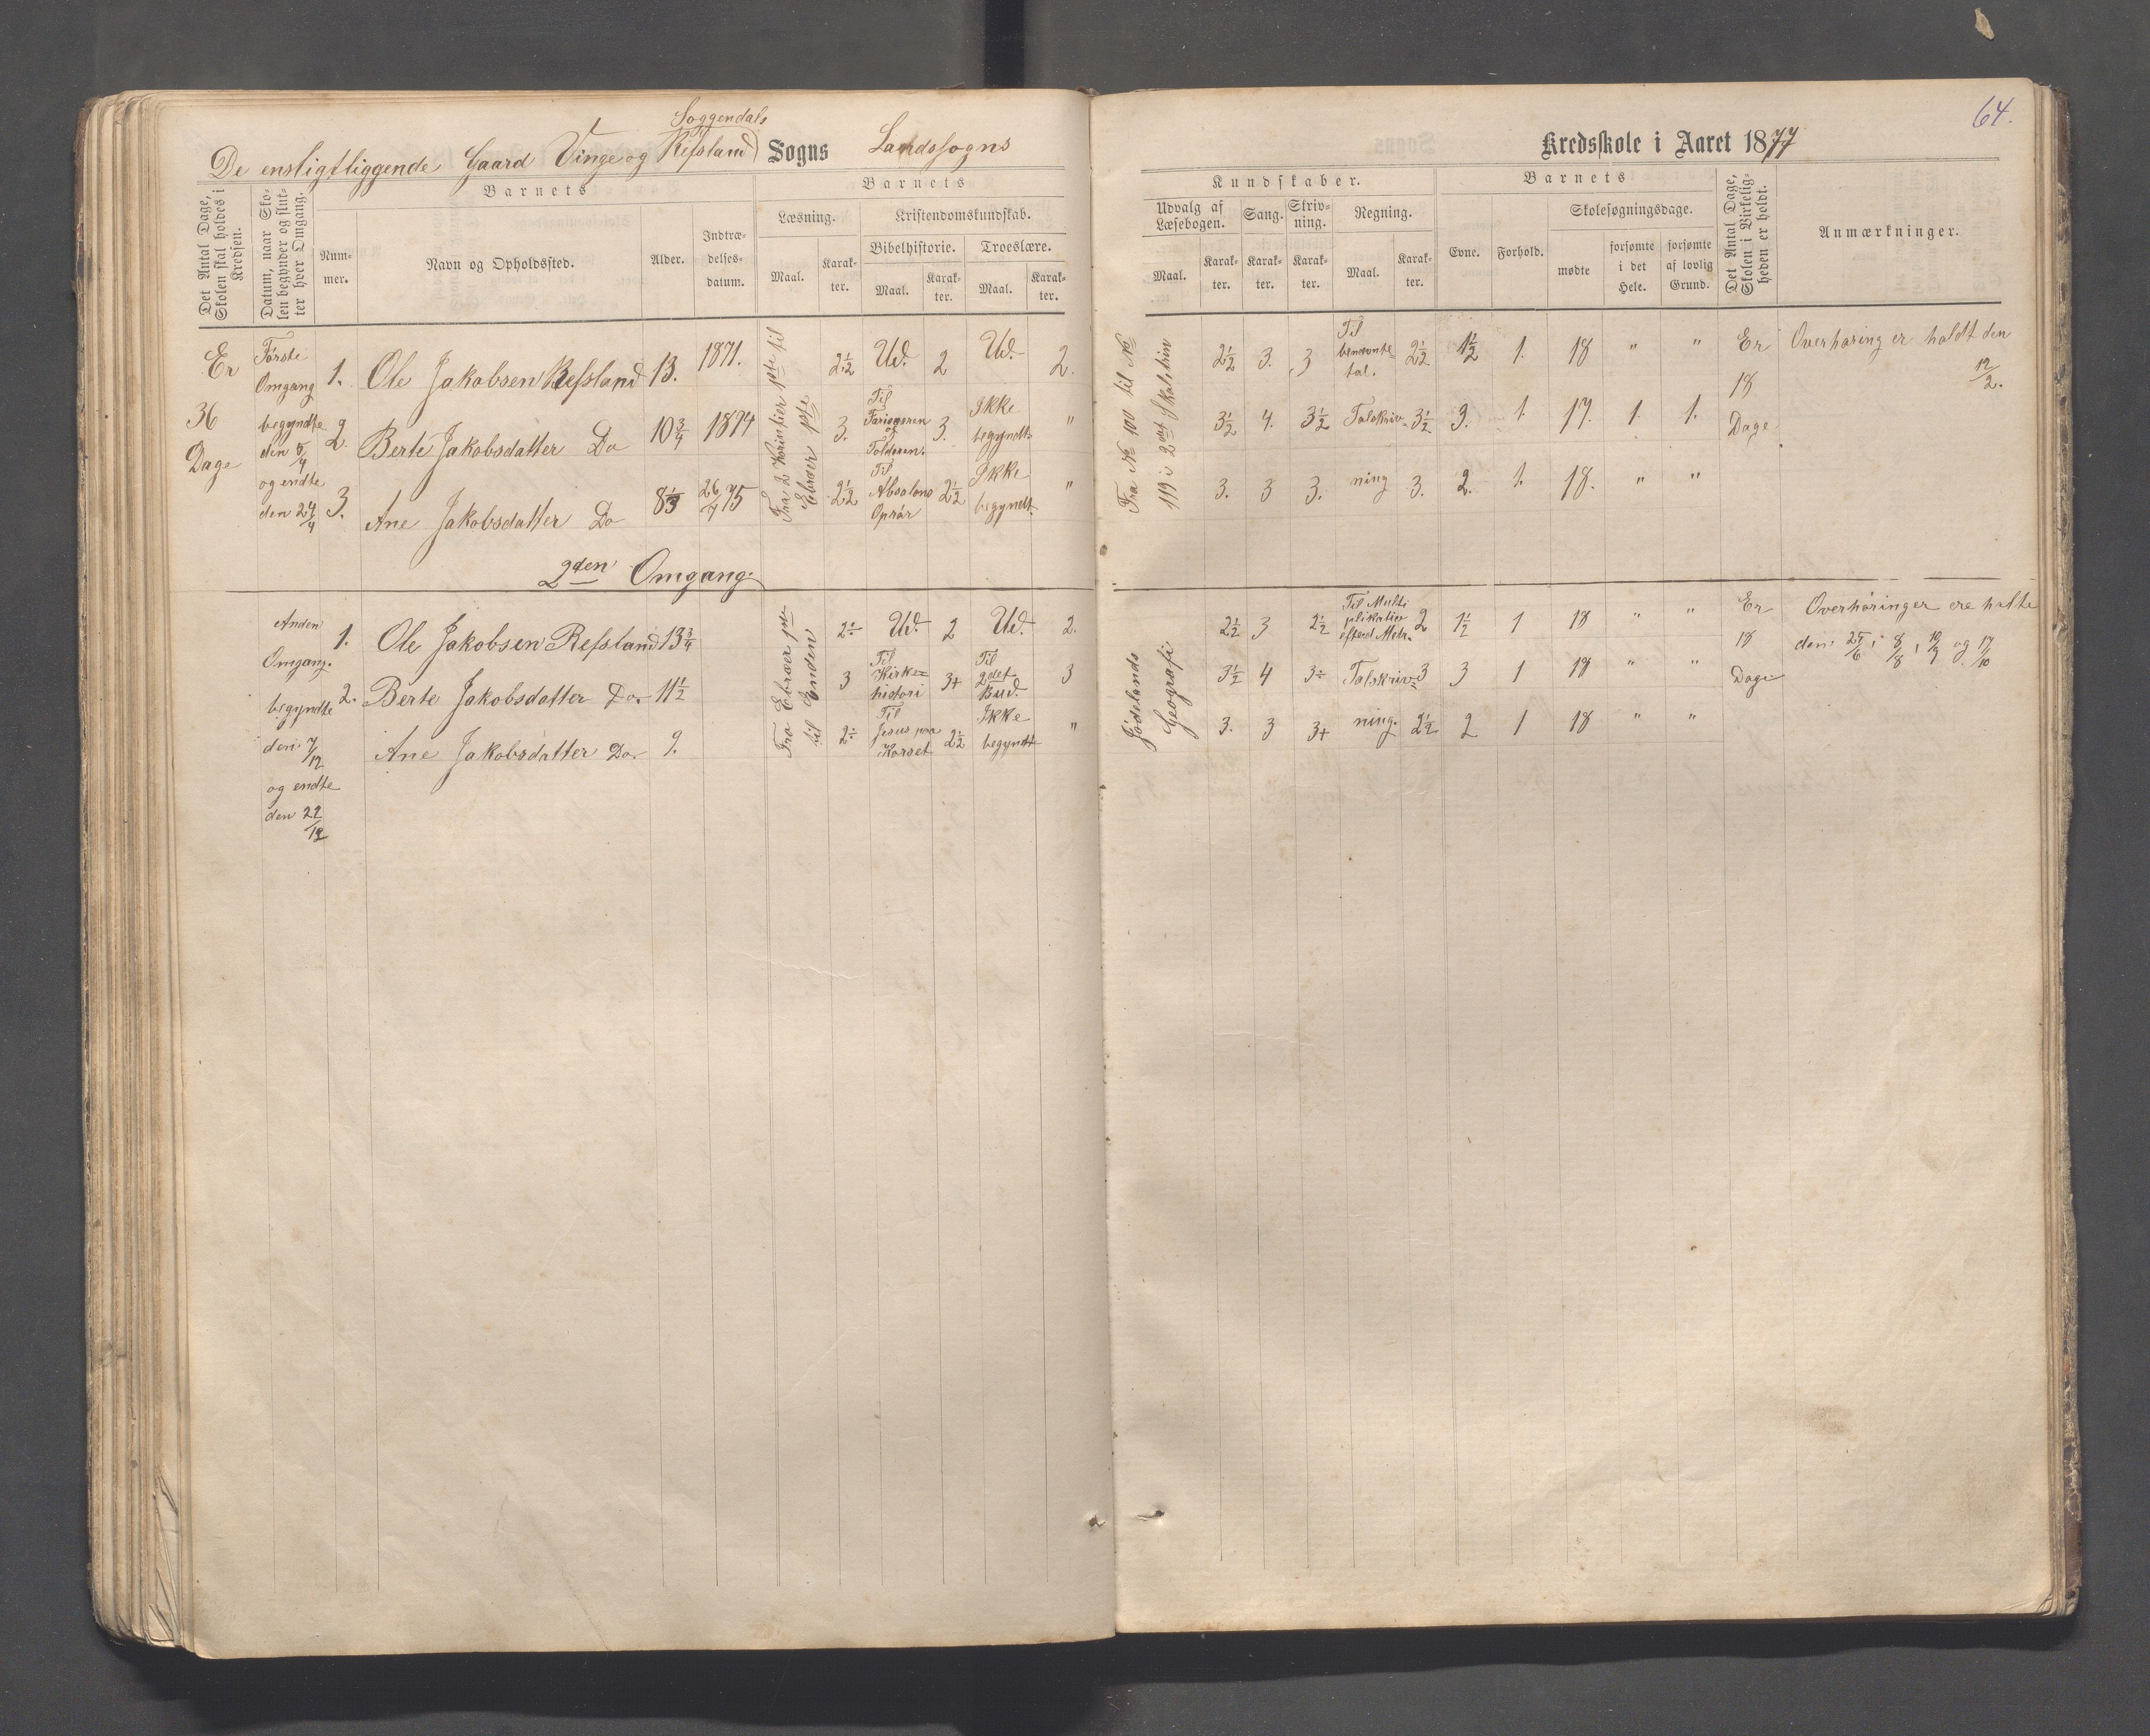 64.
Soggendals
De ensligtliggende Gaard Vinge og Refsland Sogns Landssogns
Kredsskole i Aaret 1877
Det Antal Dage, Skolen skal holdes i Kredsen.
Datum, naar Skolen begynder og slutter hver Omgang.
Barnets
Nummer.
Navn og Opholdssted.
Alder.
Indtrædelsesdatum.
Barnets
Læsning.
Maal.
Karakter.
Kristendomskundskab.
Bibelhistorie.
Maal.
Karakter.
Troeslære.
Maal.
Karakter.
Kundskaber.
Udvalg af Læsebogen.
Maal.
Karakter.
Sang.
Karakter.
Skrivning.
Karakter.
Regning.
Maal.
Karakter.
Barnets
Evne.
Forhold.
Skolesøgningsdage.
mødte
forsømte i det Hele.
forsømte af lovlig Grund.
Det Antal Dage, Skolen i Virkeligheden er holdt.
Anmærkninger.
Er
36
Dage
Første
Omgang
begyndte
den 5/4
og endte
den 24/4
Fra 2 Korintier 1ste til
Ebræer 1ste
Fra No 100 til No
119 i 2det Skoletrin
1. Ole Jakobsen Refsland 13. 1871. 2½ Ud. 2 Ud. 2. 2½ 3. 3 Til benævnte tal. 2½ 1½ 1. 18 " "
2. Berte Jakobsdatter Do 10¾ 1874 3. Til Farisæeren og Tolderen. 3. Ikke begyndt " 3½ 4. 3½ Talskriv- 3½ 3. 1. 17. 1. 1.
3. Ane Jakobsdatter Do 8⅓ 26/4 75 2½ Til Absalons Oprør 2½ Ikke begyndt. " 3. 3 3. ning 3. 2. 1. 18. " "
Er
18
Dage
Overhøring er holdt den
12/2.
2den Omgang.
Anden
Omgang.
begyndte
den 7/12
og endte
den 22/12
Fra Ebræer 1ste
til Enden
Jødelands
Geografi
1. Ole Jakobsen Refsland 13¾ 2÷ Ud. 2 Ud. 2. 2½ 3 2½ Til Multiplikation 2 1½ 1 18 " "
2. Berte Jakobsdatter Do. 11½ 3 Til Kirkehistori 3+ Til 2det Bud. 3 3½ 4 3÷ Talskriv- 3 3 1 18 " "
3. Ane Jakobsdatter Do. 9. 2÷ Til Jesus paa Korset 2½ Ikke begyndt " 3. 3 3+ ning. 2½ 2 1 18 " "
Er
18
Dage
Overhøringer ere holdte
den 25/6, 8/8, 10/9 og 17/10